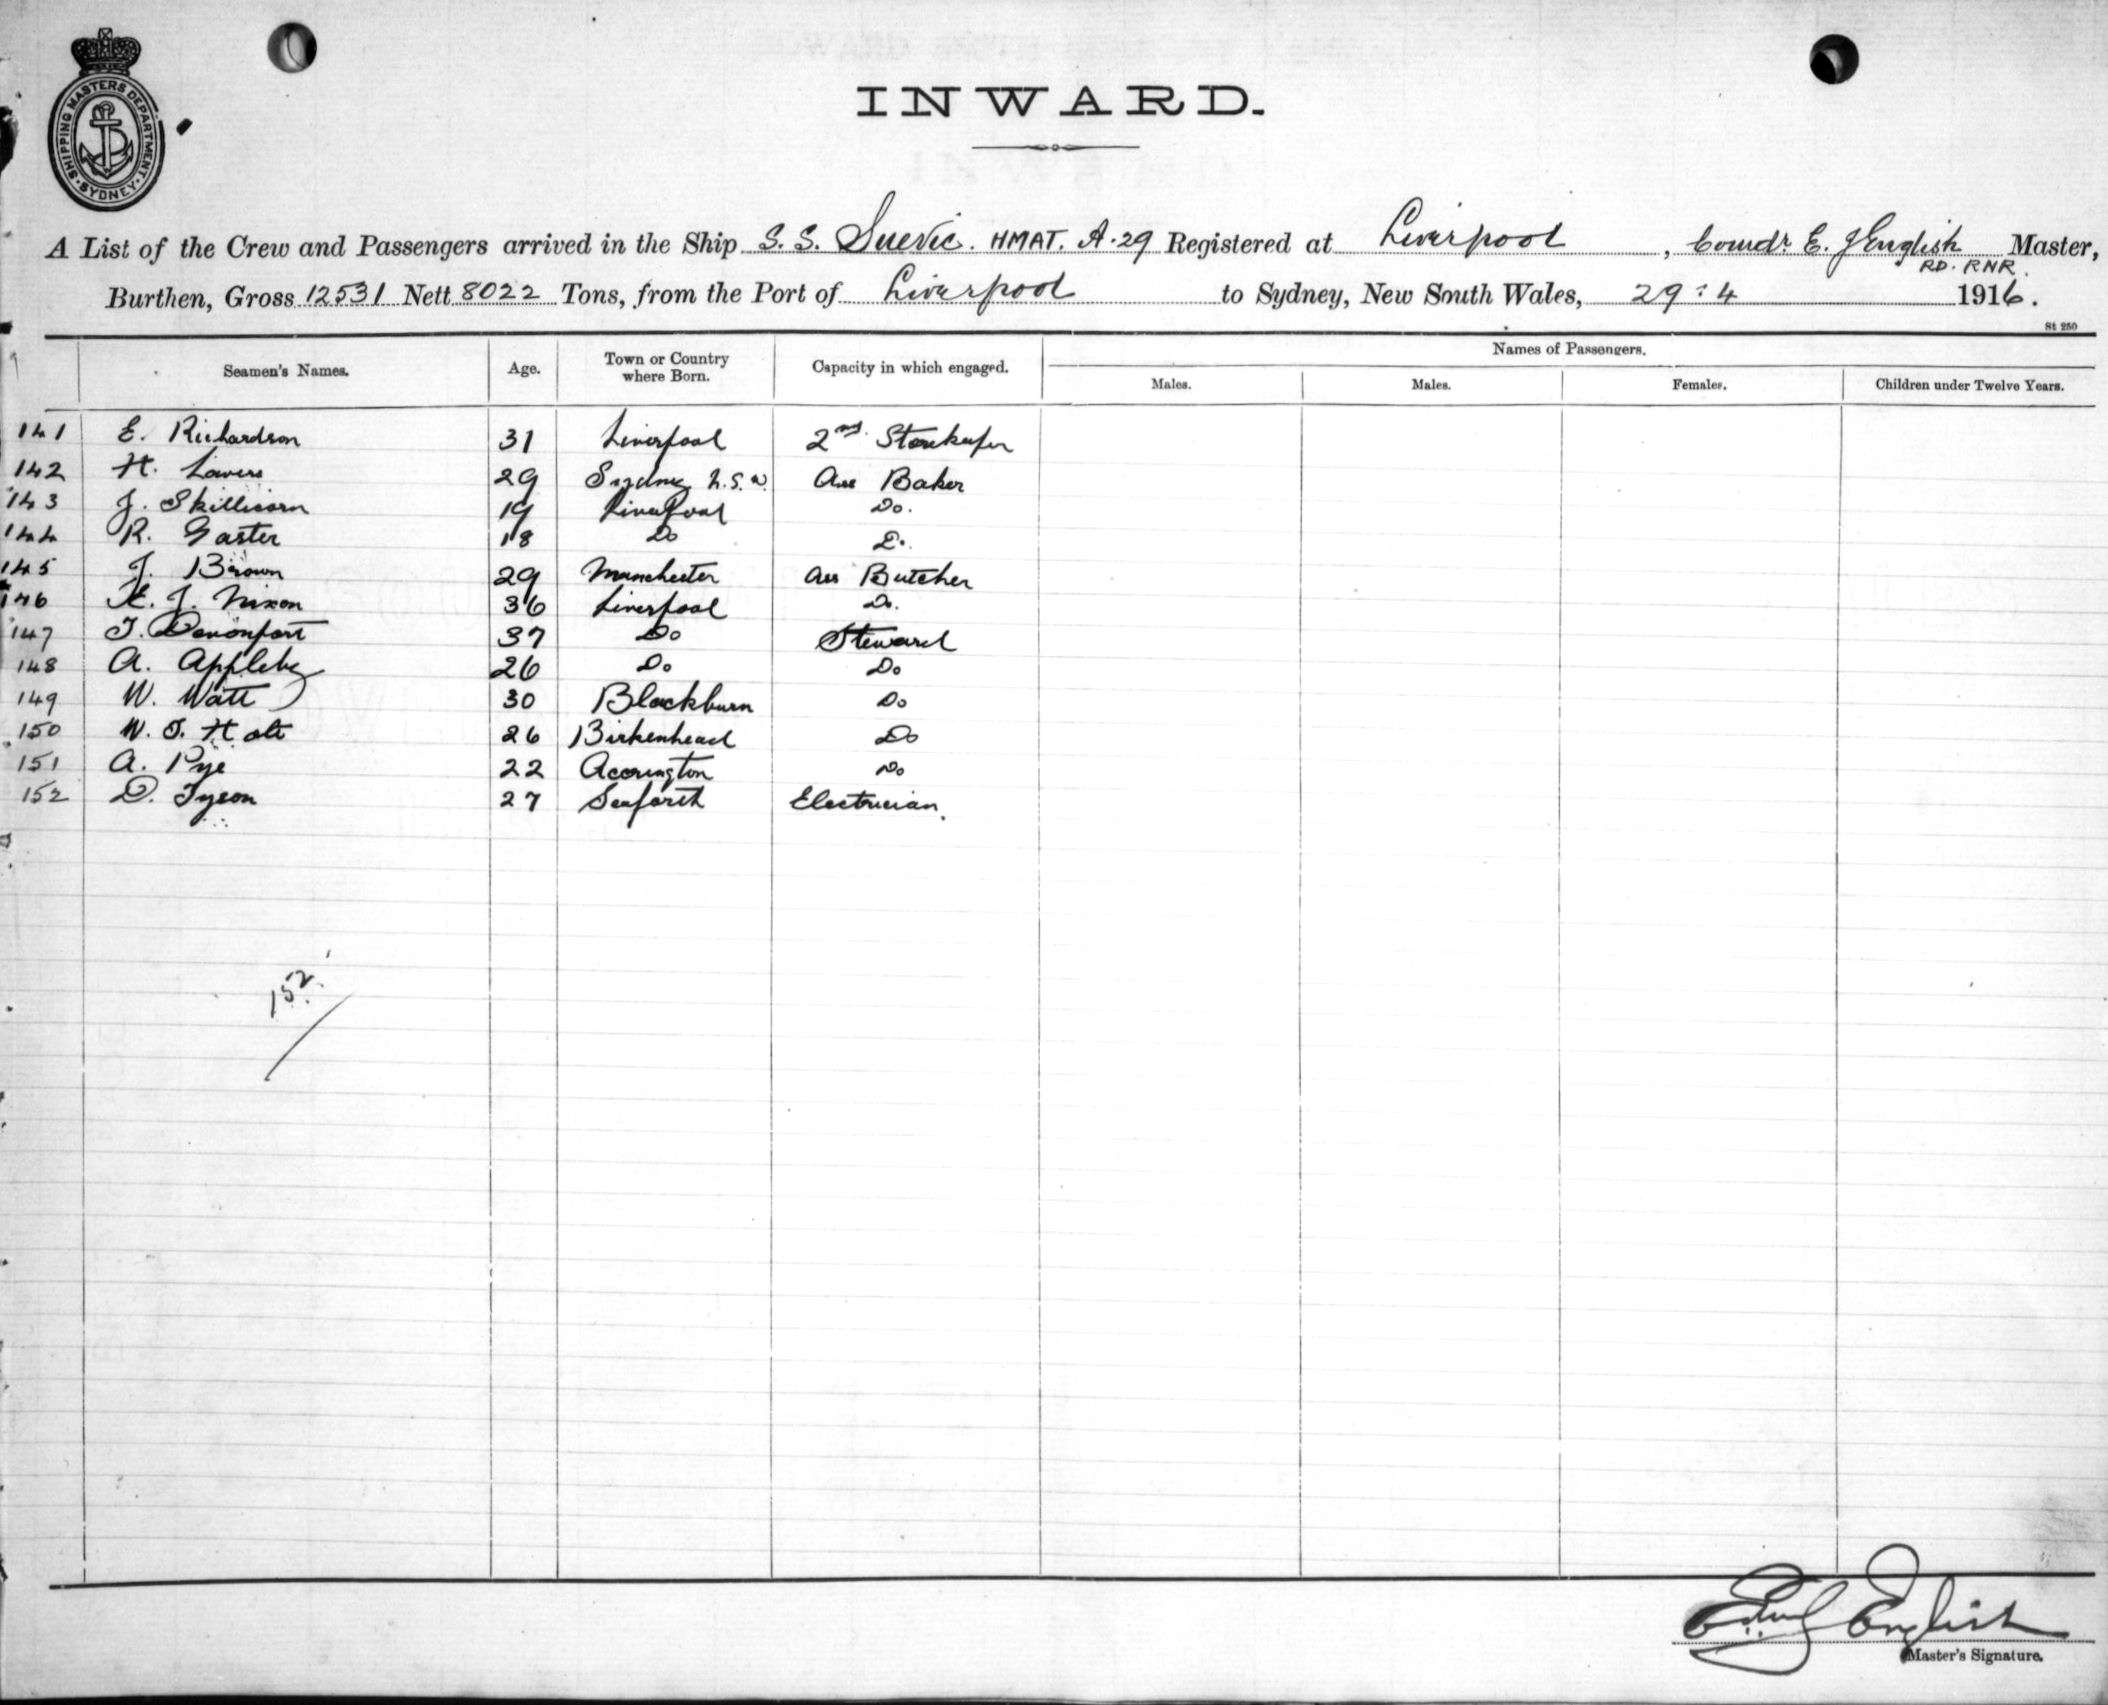 SHIPPING MASTERS DEPARTMENT · SYDNEY ·
INWARD.
A List of the Crew and Passengers arrived in the Ship S.S. Suevic. HMAT. A.29 Registered at Liverpool, Comdr. E. J English Master,
RD. RNR.
Burthen, Gross 12531 Nett 8022 Tons, from the Port of Liverpool to Sydney, New South Wales, 29:4 1916.
St 250
Seamen's Names. Age. Town or Country where Born. Capacity in which engaged. Names of Passengers.
Males. Males. Females. Children under Twelve Years.
141 E. Richardson 31 Liverpool 2nd Storekeeper
142 H. Lavers 29 Sydney N.S.W. Ass Baker
143 J. Skillicorn 19 Liverpool Do.
144 R. Gaster 18 Do Do.
145 J. Brown 29 Manchester Ass Butcher
146 E. J. Nixon 36 Liverpool Do.
147 T. Devonport 37 Do Steward
148 A. Appleby 26 Do Do
149 W. Watt 30 Blackburn Do
150 W. T. Holt 26 Birkenhead Do
151 A. Pye 22 Accrington Do
152 D. Tyson 27 Seaforth Electrician.
152
English
Master's Signature.